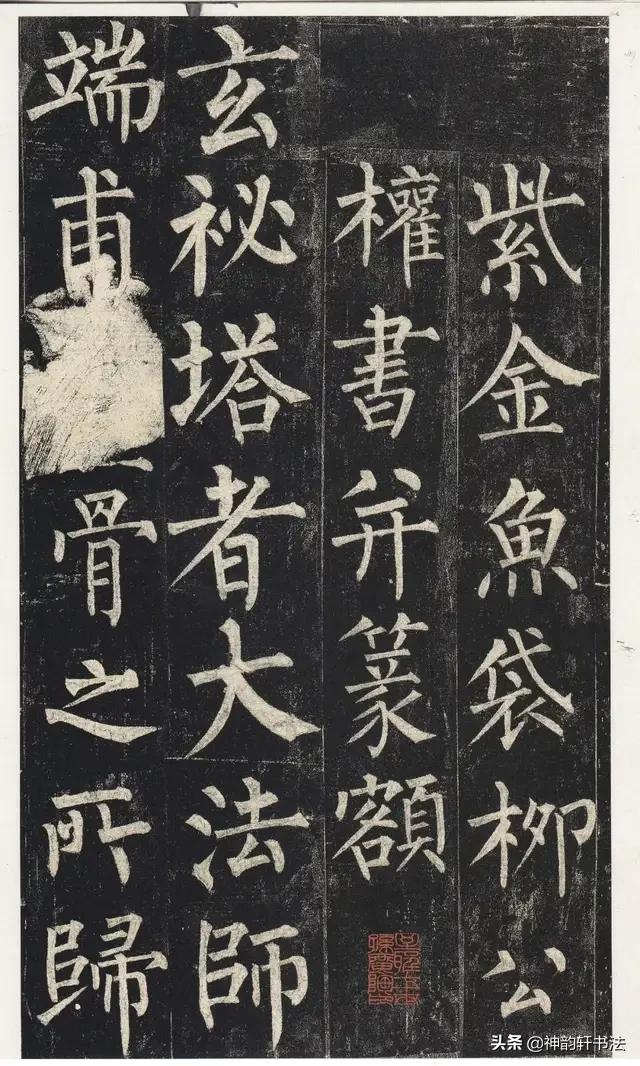 紫金魚袋柳公
權書并篆額
玄祕塔者大法師
端甫骨之所歸
头条@神韵轩书法